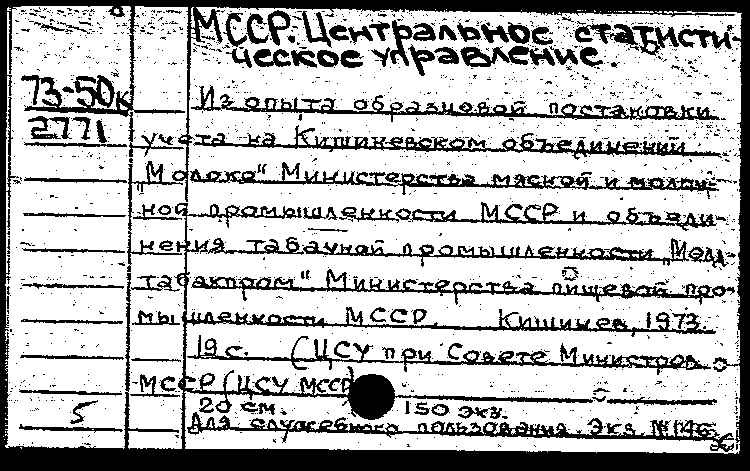 МССР. Центральное статисти-
ческое управление.
73-50к
2771
Из опыта образцовой постановки
учета на Кишиневском объединении
„Молоко“ Министерства мясной и молоч-
ной промышленности МССР и объеди-
нения табачной промышленности „Молд-
табакпром“ Министерства пищевой про-
мышленности МССР. Кишинев, 1973.
19 с. (ЦСУ при Совете Министров
МССР (ЦСУ МССР)
20 см. 150 экз.
5
Для служебного пользования. Экз. №